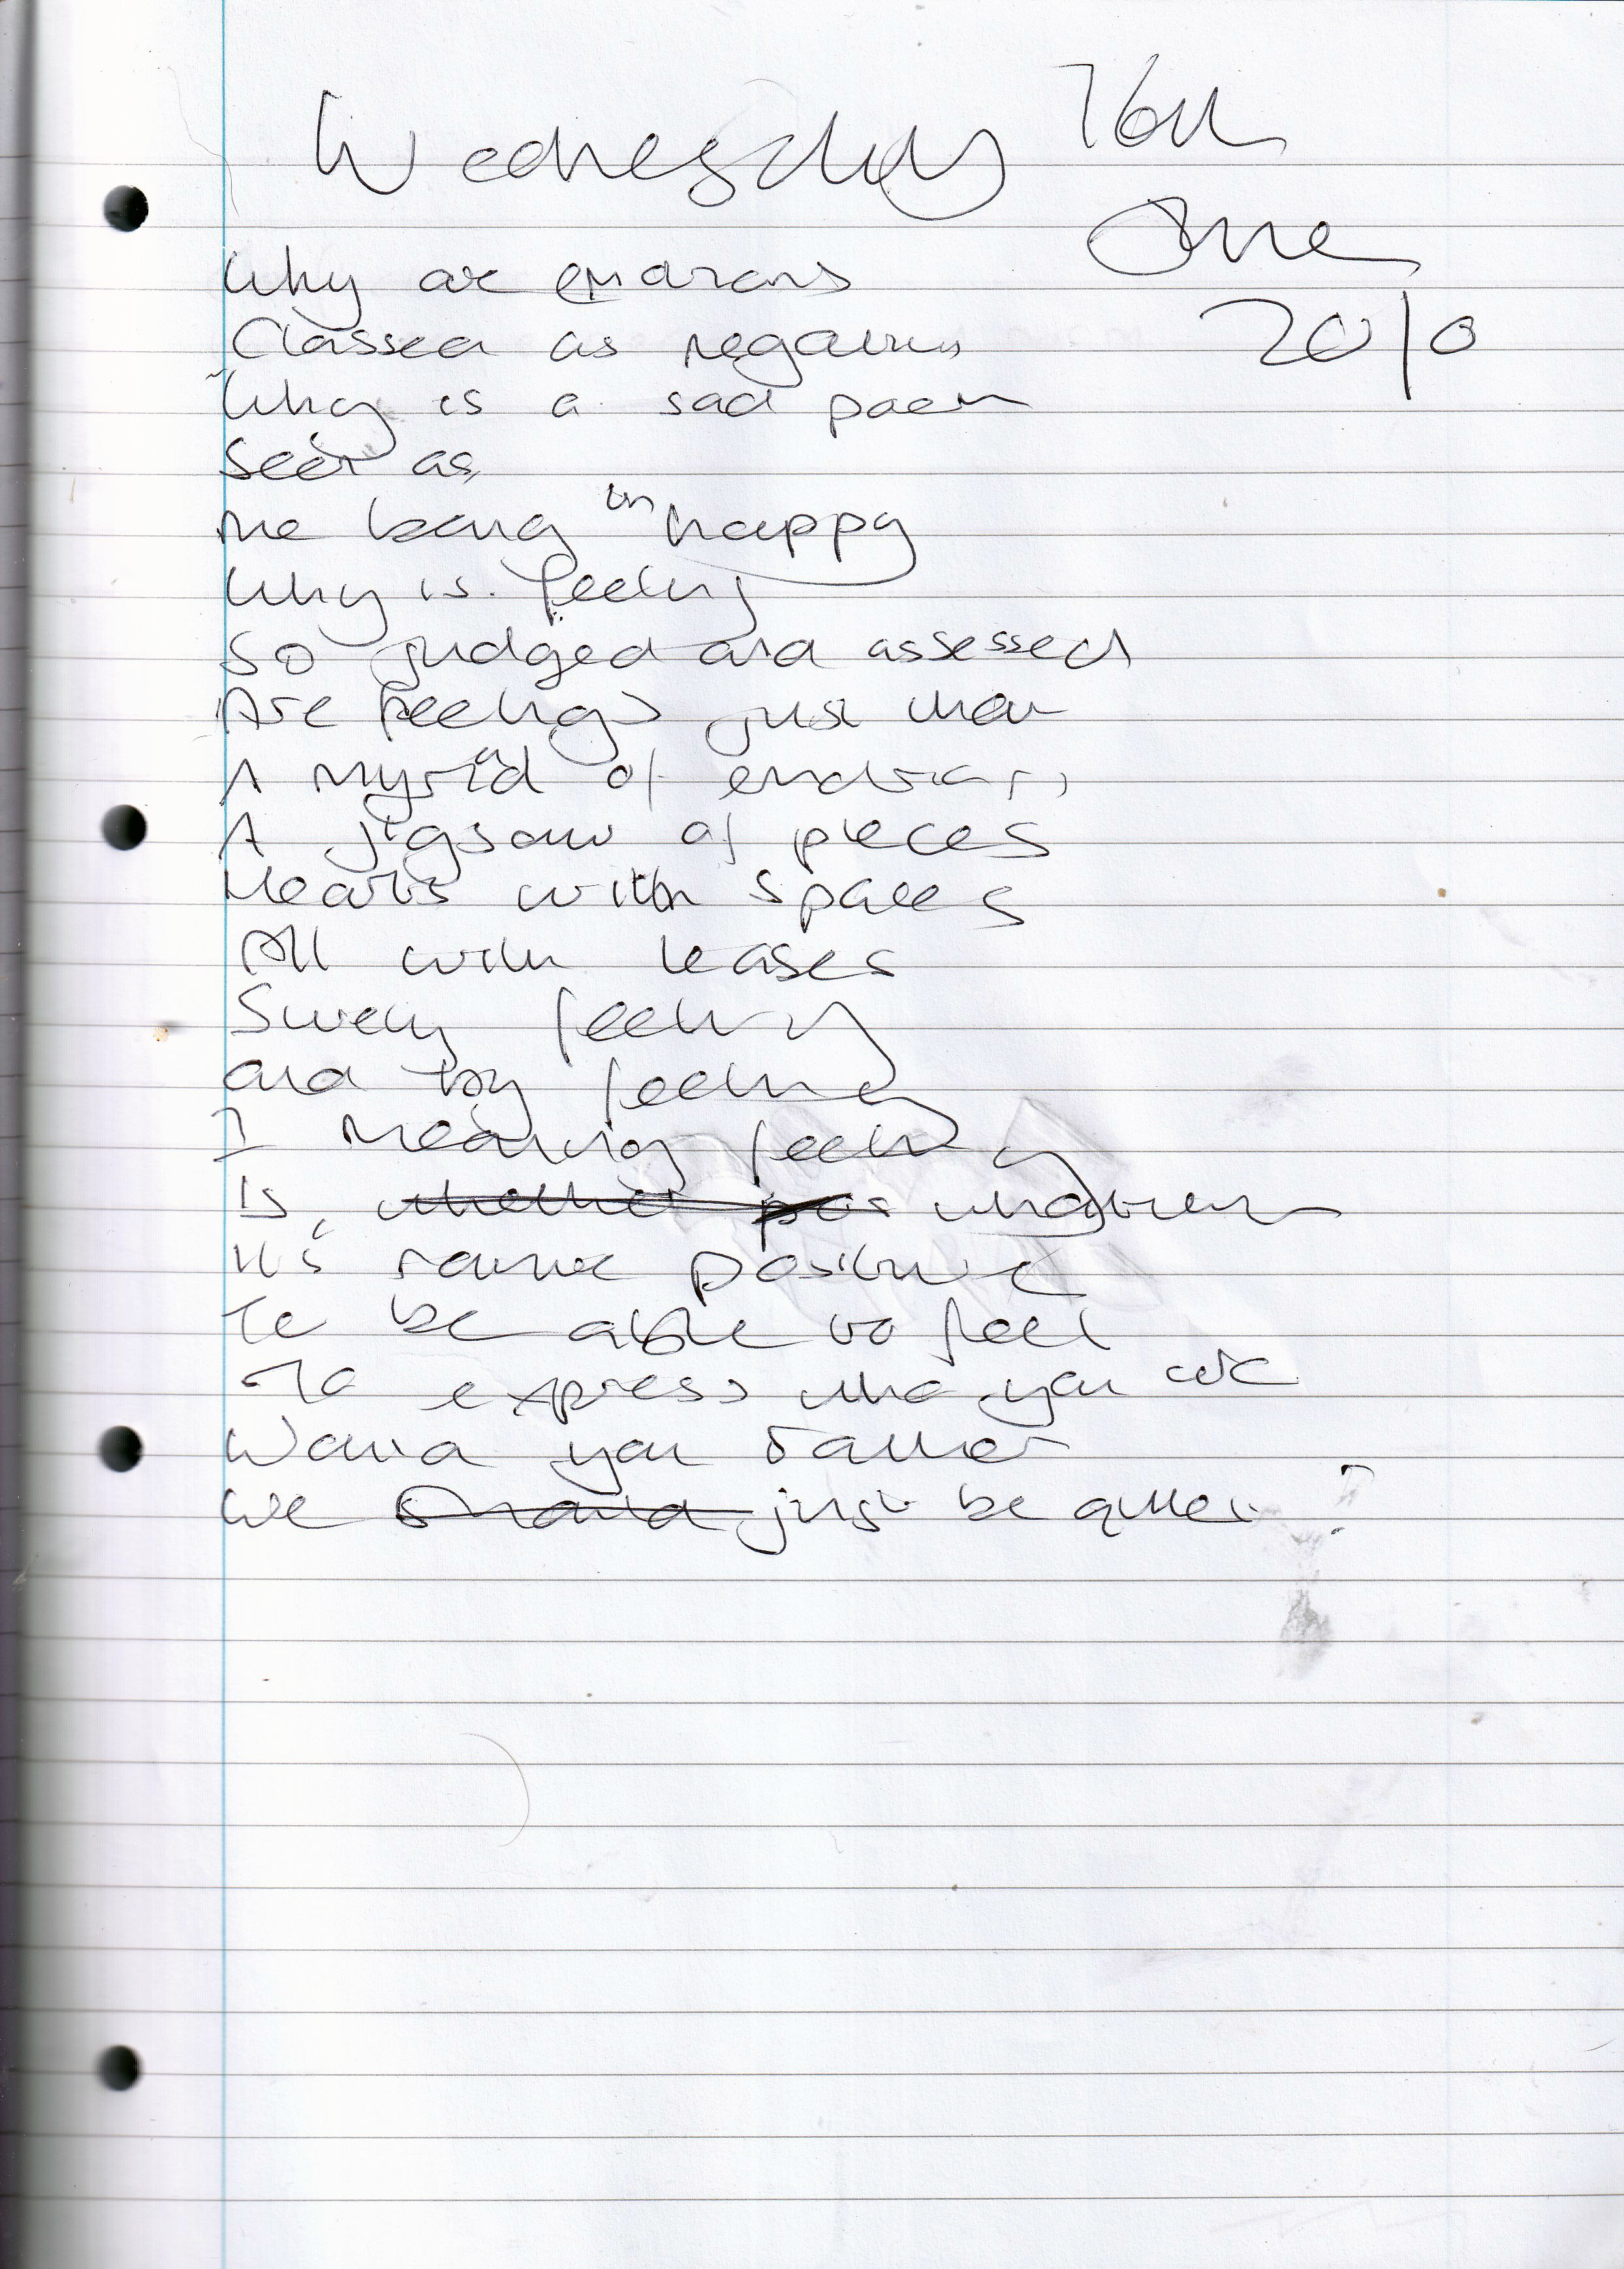 Wednesday 16th
June
2010
Why are emotions
Classed as negative
Why is a sad poem
Seen as
me being un happy
Why is feeling
so judged and assessed
Are feelings just that
A myriad of emotions
A jigsaw of pieces
Hearts with spaces
All with leases
Surely feeling
and by feeling
I meaning feeling
Is, whether pos whatever
It's rather positive
To be able to feel
To express who you are
Would you rather
We should just be quiet?